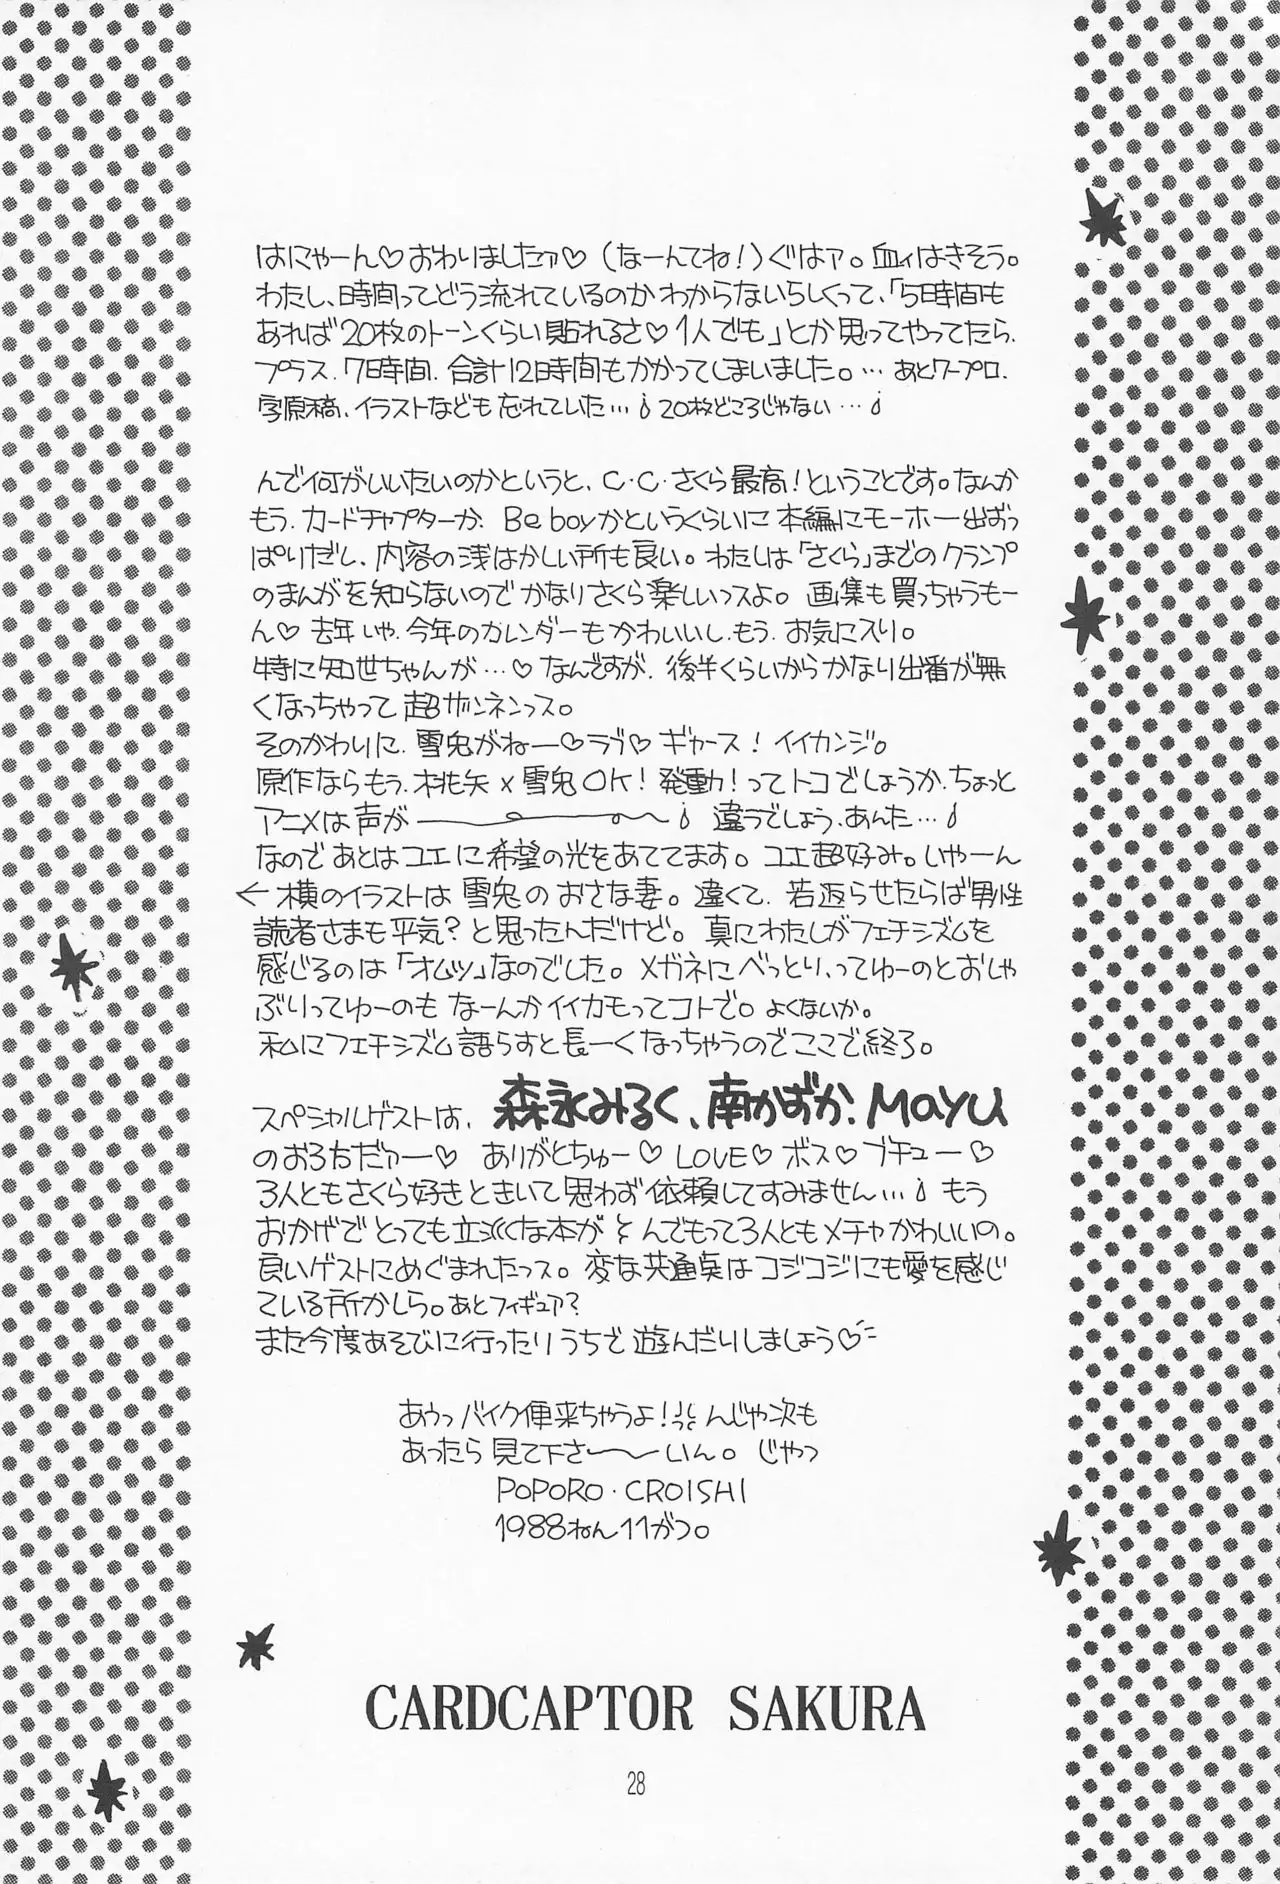 はにゃーん♡おわりましたァ♡(なーんてね!)ぐはァ。血ィはきそう。
わたし、時間ってどう流れているのかわからないらしくって、「5時間も
あれば20枚のトーンくらい貼れるさ♡1人でも」とか思ってやってたら、
プラス、7時間、合計12時間もかかってしまいました。…あとワープロ、
字原稿、イラストなども忘れていた…20枚どころじゃない…
んで何がいいたいのかというと、C・C・さくら最高!ということです。なんか
もう、カードチャプターか、Be boyかというくらいに本編にモーホー出ばっ
ぱりだし、内容の浅はかしい所も良い。わたしは「さくら」までのクランプ
のまんがを知らないのでかなりさくら楽しいっスよ。画集も買っちゃうもー
ん♡去年いや、今年のカレンダーもかわいいし、もう、お気に入り。
特に知世ちゃんが…♡なんですが、後半くらいからかなり出番が無
くなっちゃって超ザンネンっス。
そのかわりに、雪兎がねー♡ラブ♡ギャース!イイカンジ。
原作ならもう、桃矢×雪兎OK!発動!ってトコでしょうか、ちょっと
アニメは声が――――〜 違うでしょう、あんた…
なのであとはユエに希望の光をあててます。ユエ超好み。いやーん
←横のイラストは雪兎のおさな妻。遠くて、若返らせたらば男性
読者さまも平気?と思ったんだけど。真にわたしがフェチシズムを
感じるのは「オムツ」なのでした。メガネにべっとり、ってゆーのとおしゃ
ぶりってゆーのもなーんかイイカモってコトで。よくないか。
私にフェチシズム語らすと長ーくなっちゃうのでここで終了。
スペシャルゲストは、森永みるく、南かずか、Mayu
のお3方だァー♡ありがとちゅー♡LOVE♡ボス♡ブキュー♡
3人ともさくら好きときいて思わず依頼してすみません…もう
おかげでとっても立派な本がとんでもって3人ともメチャかわいいの。
良いゲストにめぐまれたっス。変な共通点はコジコジにも愛を感じ
ている所かしら。あとフィギュア?
また今度あそびに行ったりうちで遊んだりしましょう♡
あうっバイク便来ちゃうよ!んじゃ次も
あったら見て下さ〜〜いん。じゃっ
POPORO・CROISHI
1988ねん11がつ。
CARDCAPTOR SAKURA
28